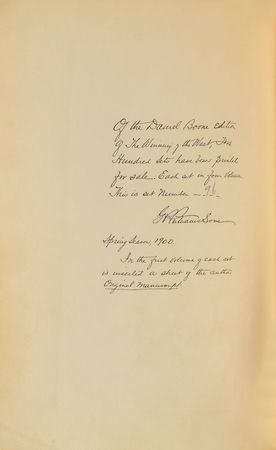 Of the Daniel Boone Edition
of The Winning of the West, Two
Hundred sets have been printed
for sale. Each set in four volumes
This is set Number - 96 -
G P Putnam's Sons
Spring Season, 1900
In the first volume of each set
is inserted a sheet of the author
Original Manuscript.